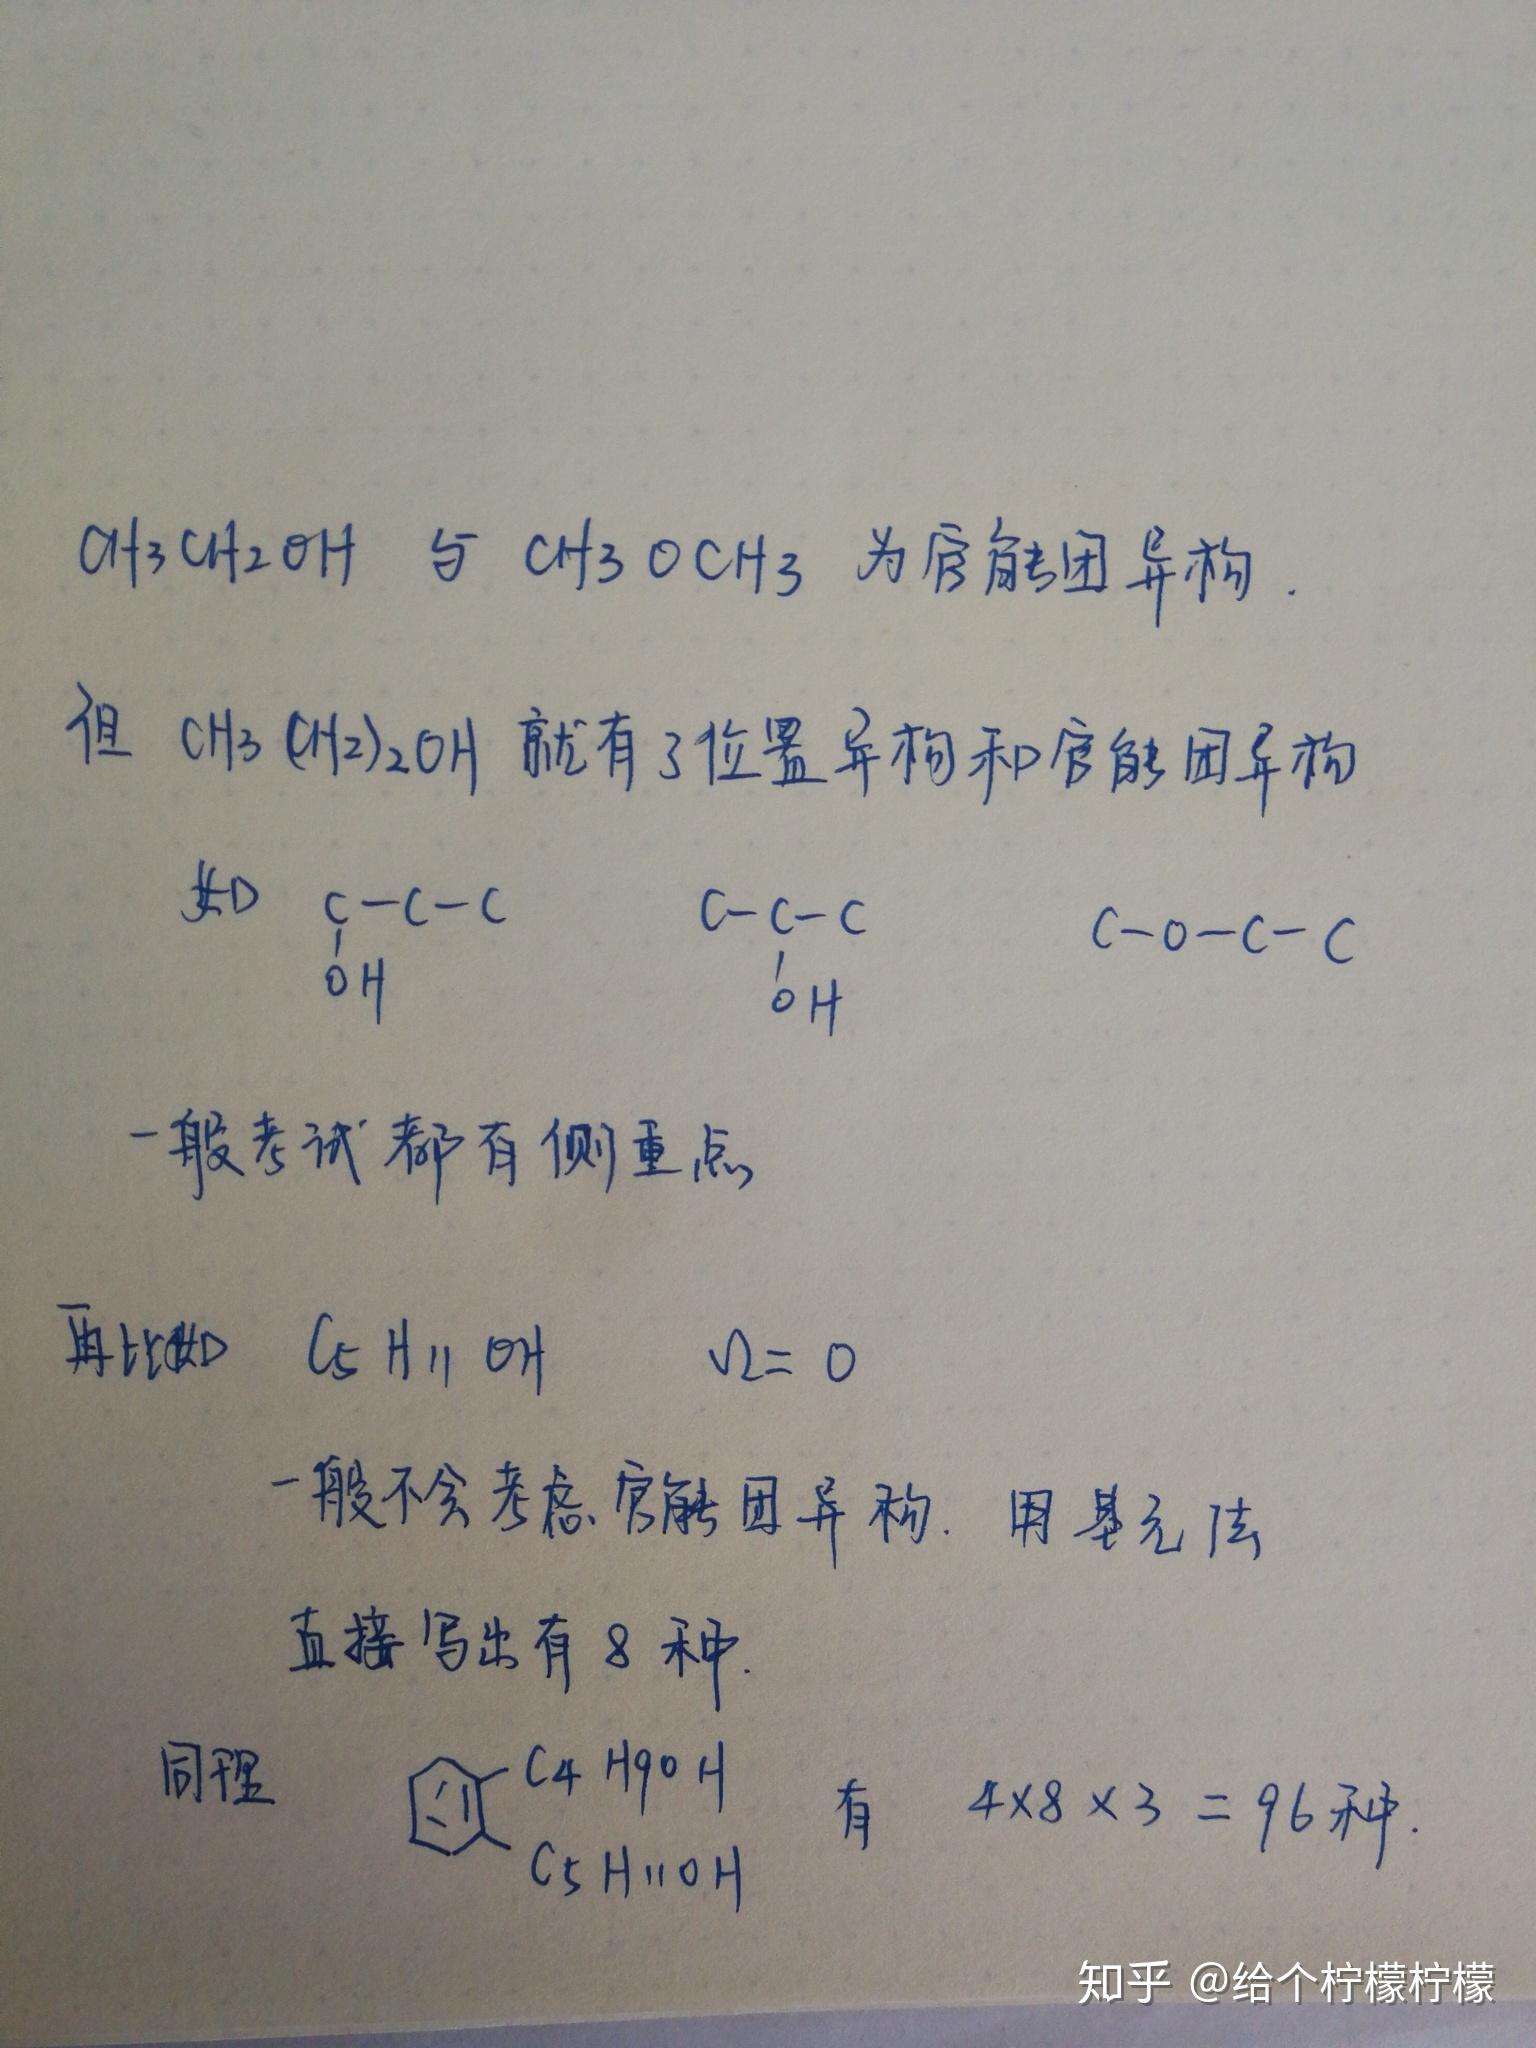 CH3CH2OH 与 CH3OCH3 为官能团异构.
但 CH3(CH2)2OH 就有了位置异构和官能团异构
如 C-C-C C-C-C C-O-C-C
OH OH
一般考试都有侧重点
再比如 C5H11OH Ω=0
一般不会考虑官能团异构. 用基元法
直接写出有8种.
同理 C4H9OH 有 4×8×3=96种.
C5H11OH
知乎 @给个柠檬柠檬